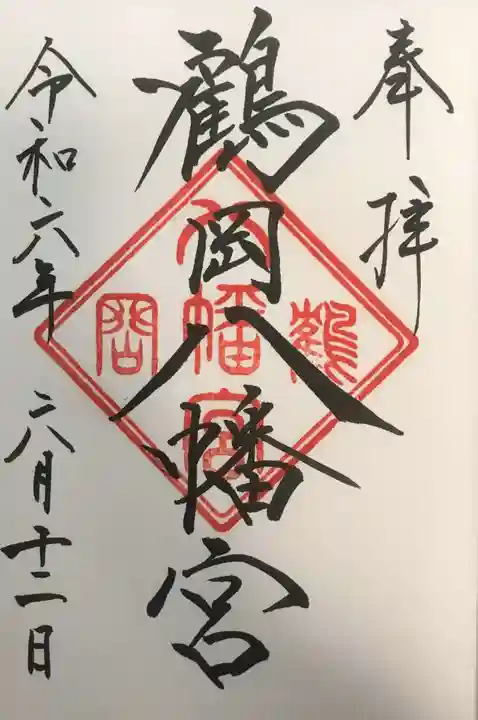 奉拝
鶴岡八幡宮
鶴
八幡宮
岡
令和六年 六月十二日